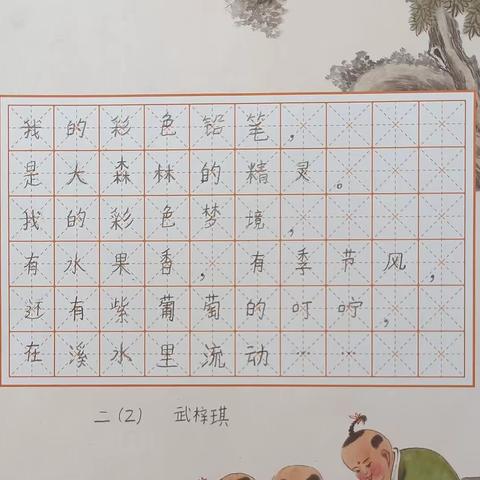 我的彩色铅笔，
是大森林的精灵。
我的彩色梦境，
有水果香，有季节风，
还有紫葡萄的叮咛，
在溪水里流动……
二（2） 武梓琪